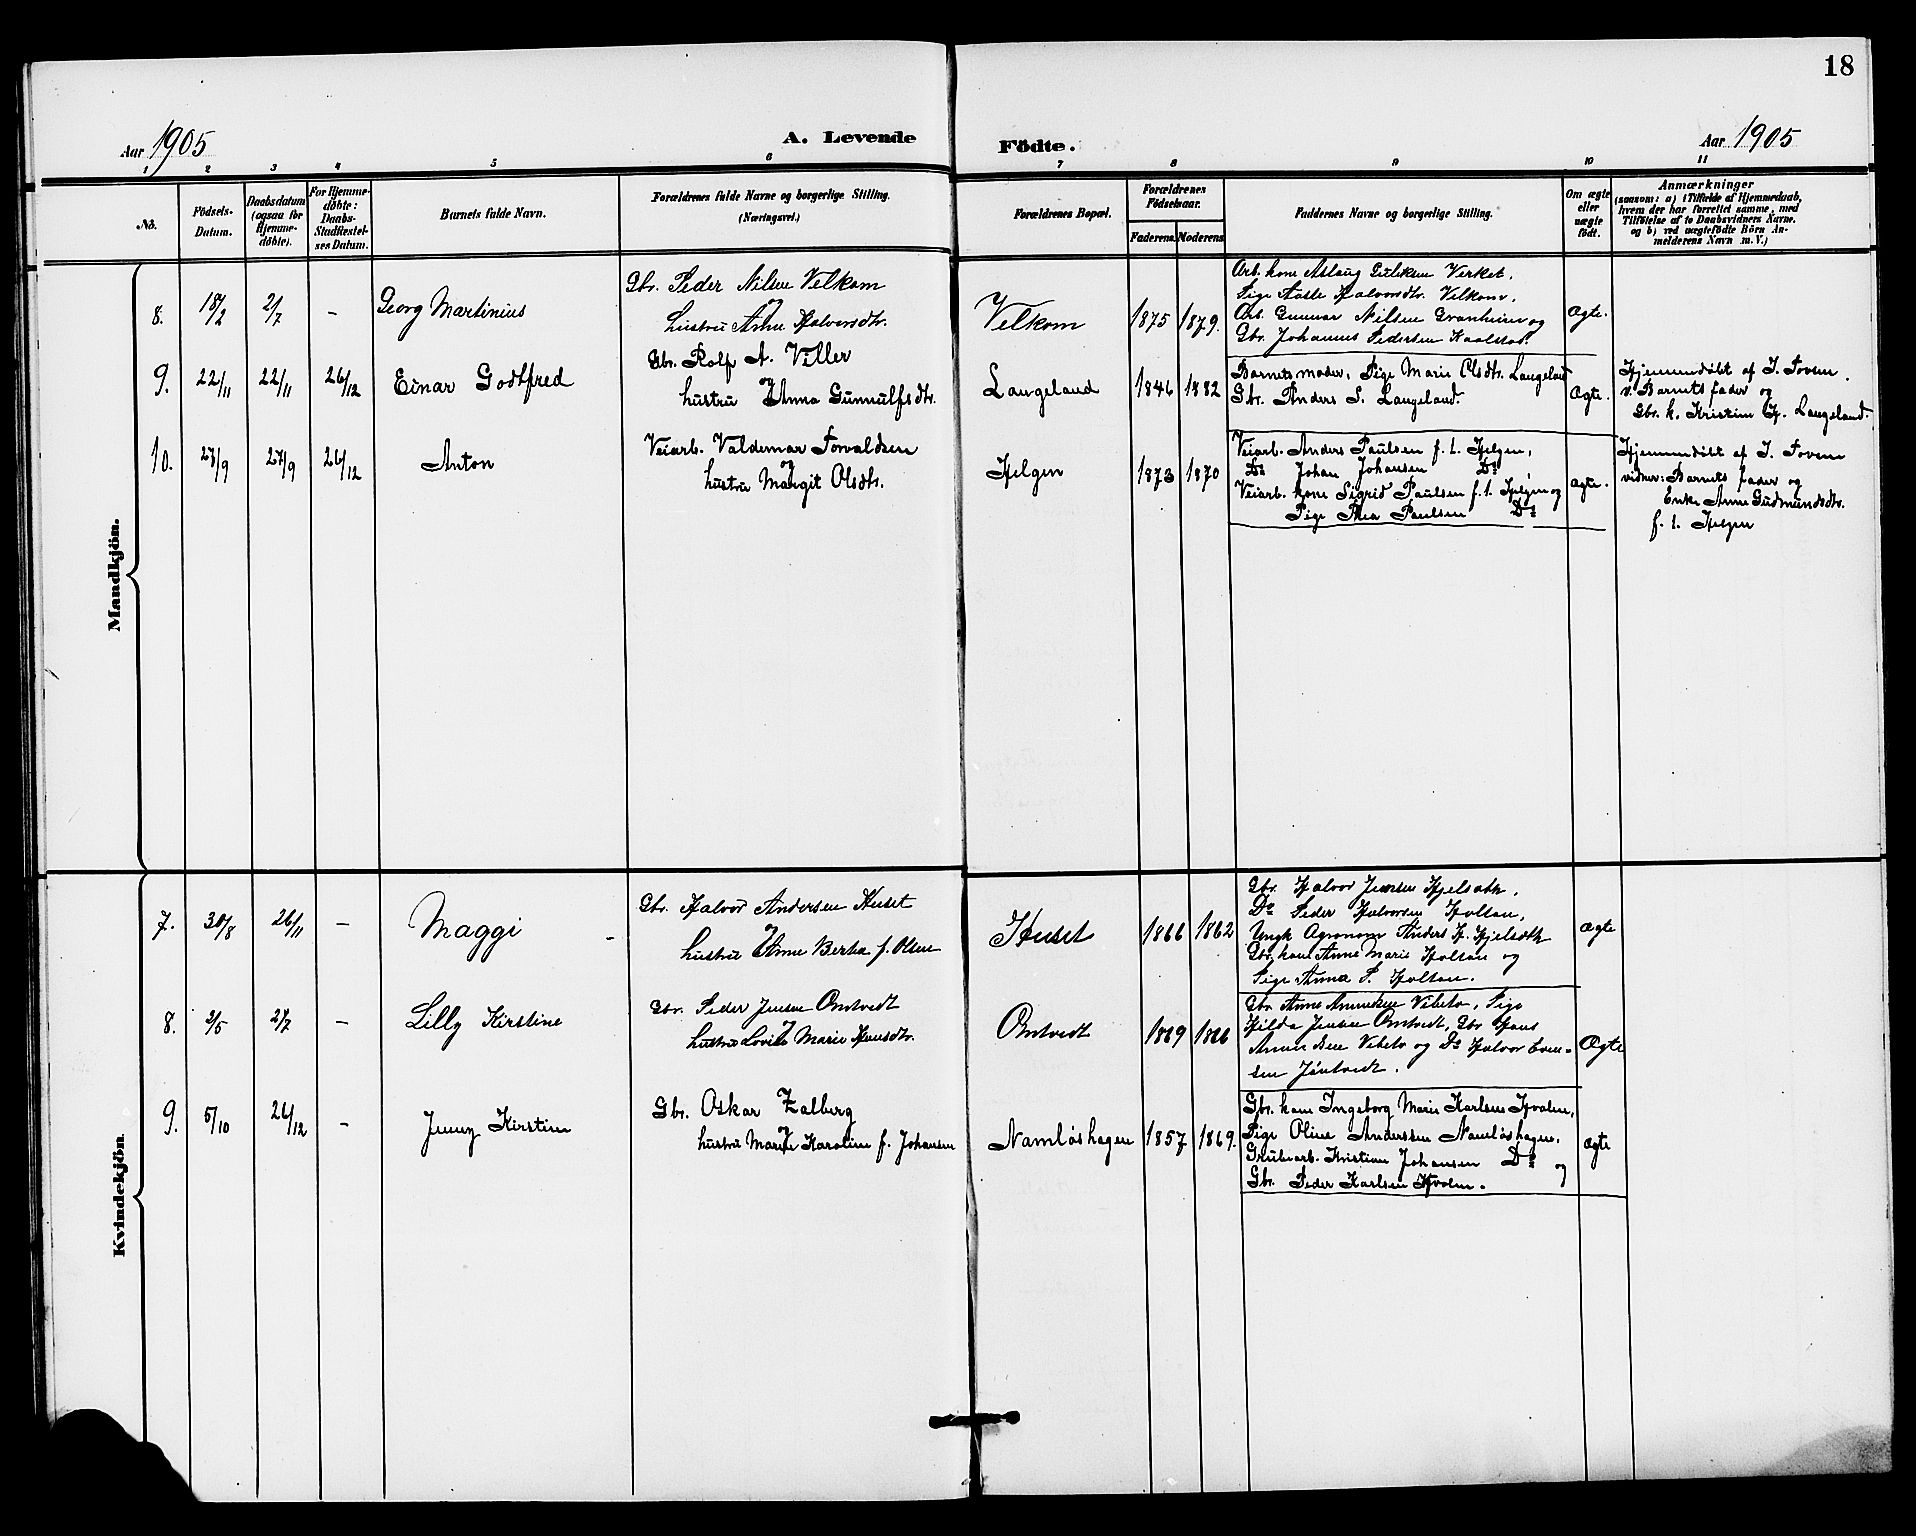 18
Aar 1905
A. Levende
Födte.
Aar 1905
1 2 3 4 5 6 7 8 9 10 11
No.
Födsels-
Datum.
Daabsdatum
(ogsaa for
Hjemme-
döbte).
For Hjemme-
döbte:
Daabs-
Stadfæstel-
ses Datum.
Barnets fulde Navn.
Forældrenes fulde Navne og borgerlige Stilling.
(Næringsvei.)
Forældrenes Bopæl.
Forældrenes
Födselsaar.
Faderens
Moderens
Faddernes Navne og borgerlige Stilling.
Om ægte
eller
uægte
födt.
Anmærkninger
(saasom: a) i Tilfælde af Hjemmedaab,
hvem der har forrettet samme, med
Tilföielse af to Daabsvidners Navne.
og b) ved uægtefödte Börn An-
melderens Navn m. V.)
Mandkjön.
8.
18/2
2/7
–
Georg Martinius
Gbr. Peder Nilsen Velkom
og
hustru Anne Halvorsdtr.
Velkom
1875
1879.
Arb. kone Aslaug Guliksen Verket.
Pige Aasle Halvorsdtr. Velkom.
Arb. Gunnar Nilsen Granheim og
Gbr. Johannes Pedersen Kaalstad.
Ægte.
9.
22/11
22/11
26/12
Einar Godtfred
Gbr. Rolf A. Viller
og
hustru Anna Gunnulfsdtr.
Langeland
1846
1882
Barnets moder, Pige Marie Olsdtr. Langeland
Gbr. Anders S. Langeland.
Ægte.
Hjemmedöbt af I. Foven.
v. Barnets fader og
Gbr. k. Kristine H. Langeland.
10.
27/9
27/9
26/12
Anton
Veiarb. Valdemar Torvaldsen
og
hustru Margit Olsdtr.
Helgen
1873
1870
Veiarb. Anders Paulsen f. t. Helgen,
Do Johan Johansen Do
Veiarb. kone Sigrid Paulsen f. t. Helgen og
Pige Thea Paulsen Do
Ægte.
Hjemmedöbt af I. Foven
vidner: Barnets fader og
Enke Anne Gudmundsdtr.
f. t. Helgen
Kvindekjön.
7.
30/8
26/11
–
Maggi
Gbr. Halvor Andersen Huset
og
hustru Anne Bertha f. Olsen
Huset
1866
1862
Gbr. Halvor Jensen Hjelseth.
Do Peder Halvorsen Holtan,
Ungk Agronom Anders H. Hjelseth
Gbr. kone Anne Marie Holtan og
Pige Anna P. Holtan.
Ægte
8.
2/5
2/7
–
Lilly Kirstine
Gbr. Peder Jensen Omtvedt
og
hustru Lovise Marie Hansdtr.
Omtvedt
1869
1866
Gbr. Anne Vibeto, Pige
Hilda Jensen Omtvedt, Gbr Hans
Vibeto og Do Halvor Even-
sen Jöntvedt.
Ægte
9.
5/10
26/12
–
Jenny Kirstine
Gbr. Oskar Zalberg
og
hustru Marie Karoline f. Johansen
Namløshagen
1857
1869.
Gbr. kone Ingeborg Marie Karlsen Hvalen,
Pige Oline Anderssen Namløshagen.
Grubearb. Kristian Johansen Do og
Gbr. Peder Karlsen Hvalen.
Ægte